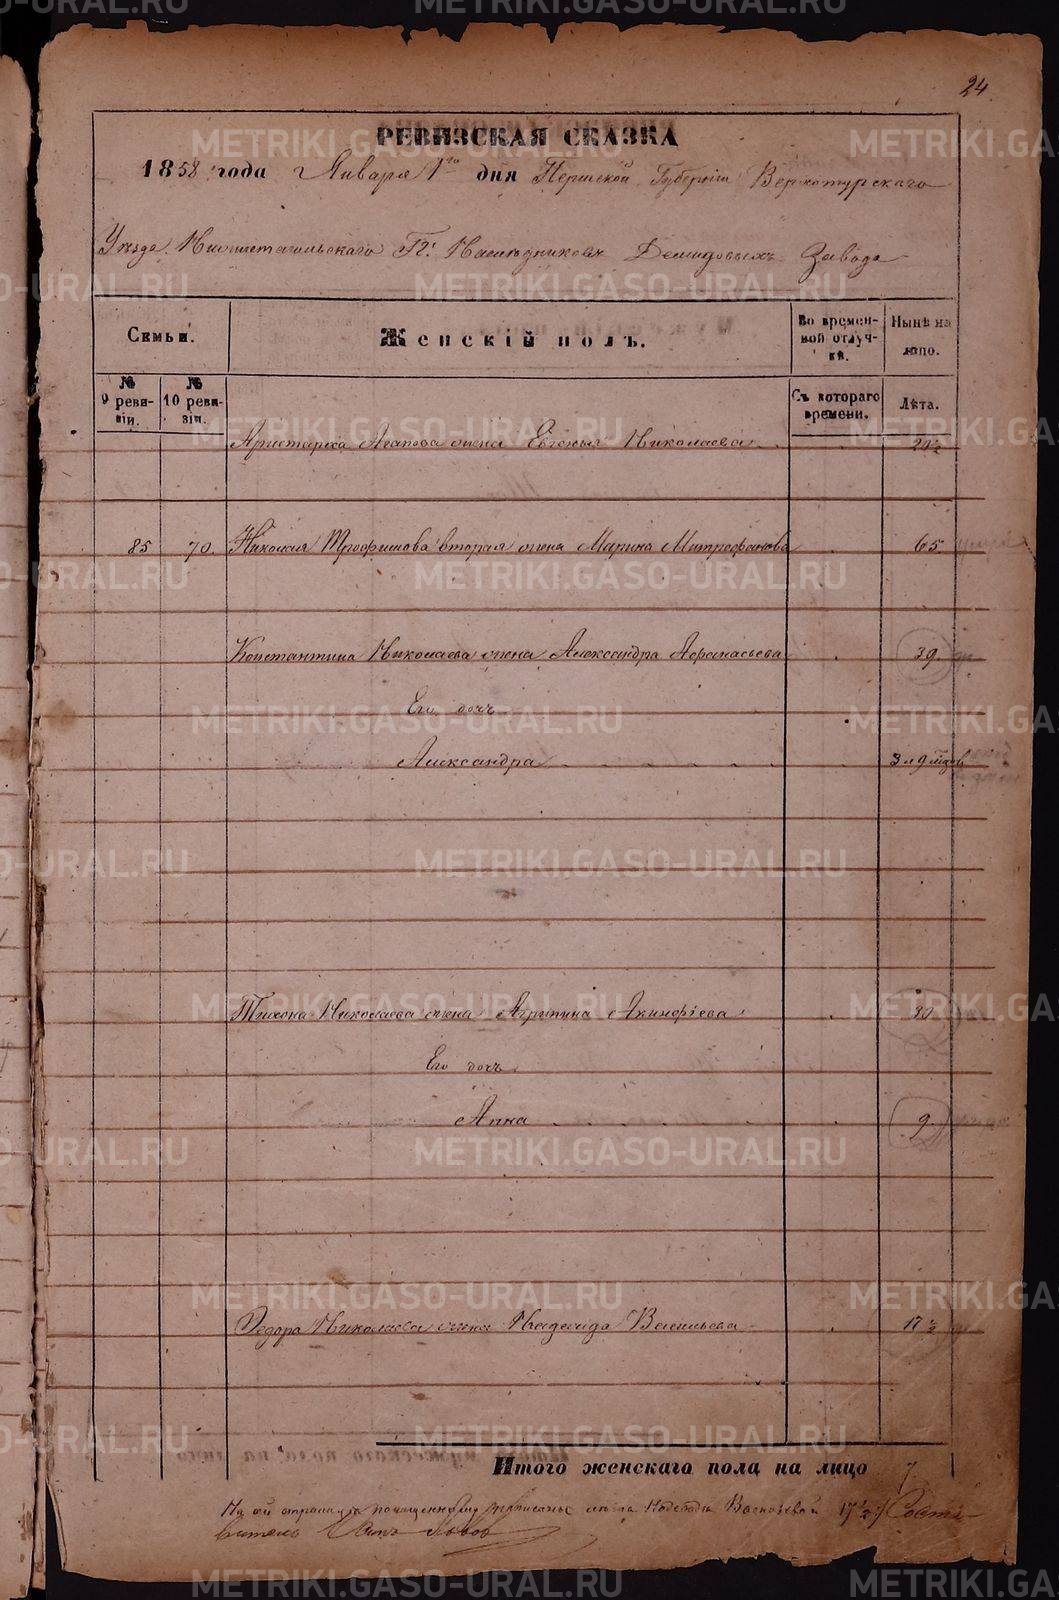 24
РЕВИЗСКАЯ СКАЗКА
1858 года Января 1го дня Пермской Губернiи Верхотурскаго
Уѣзда Нижнетагильскаго Гг. Наслѣдниковъ Демидовыхъ Завода
Семьи.
Женскiй полъ.
Во времен-
ной отлуч-
кѣ.
Нынѣ на
лицо.
№
9 реви-
зiи.
№
10 реви-
зiи.
Съ котораго
времени.
Лѣта.
Аристарха Агапова жена Евгенья Николаева 20½
85 70. Николая Трофимова вторая жена Марина Митрофанова 65
Константина Николаева жена Александра Афанасьева 39.
Его дочь
Александра 3 л 9 мѣсяц
Тихона Николаева жена Агрипина Акинфiева 30
Его дочь
Анна 9
Федора Николаева жена Надежда Васильева 17½
Итого женскаго пола на лицо 7
На сей страницѣ по
лѣта Надежды Васильевой 17½ Соста-
витель
METRIKI.GASO-URAL.RU